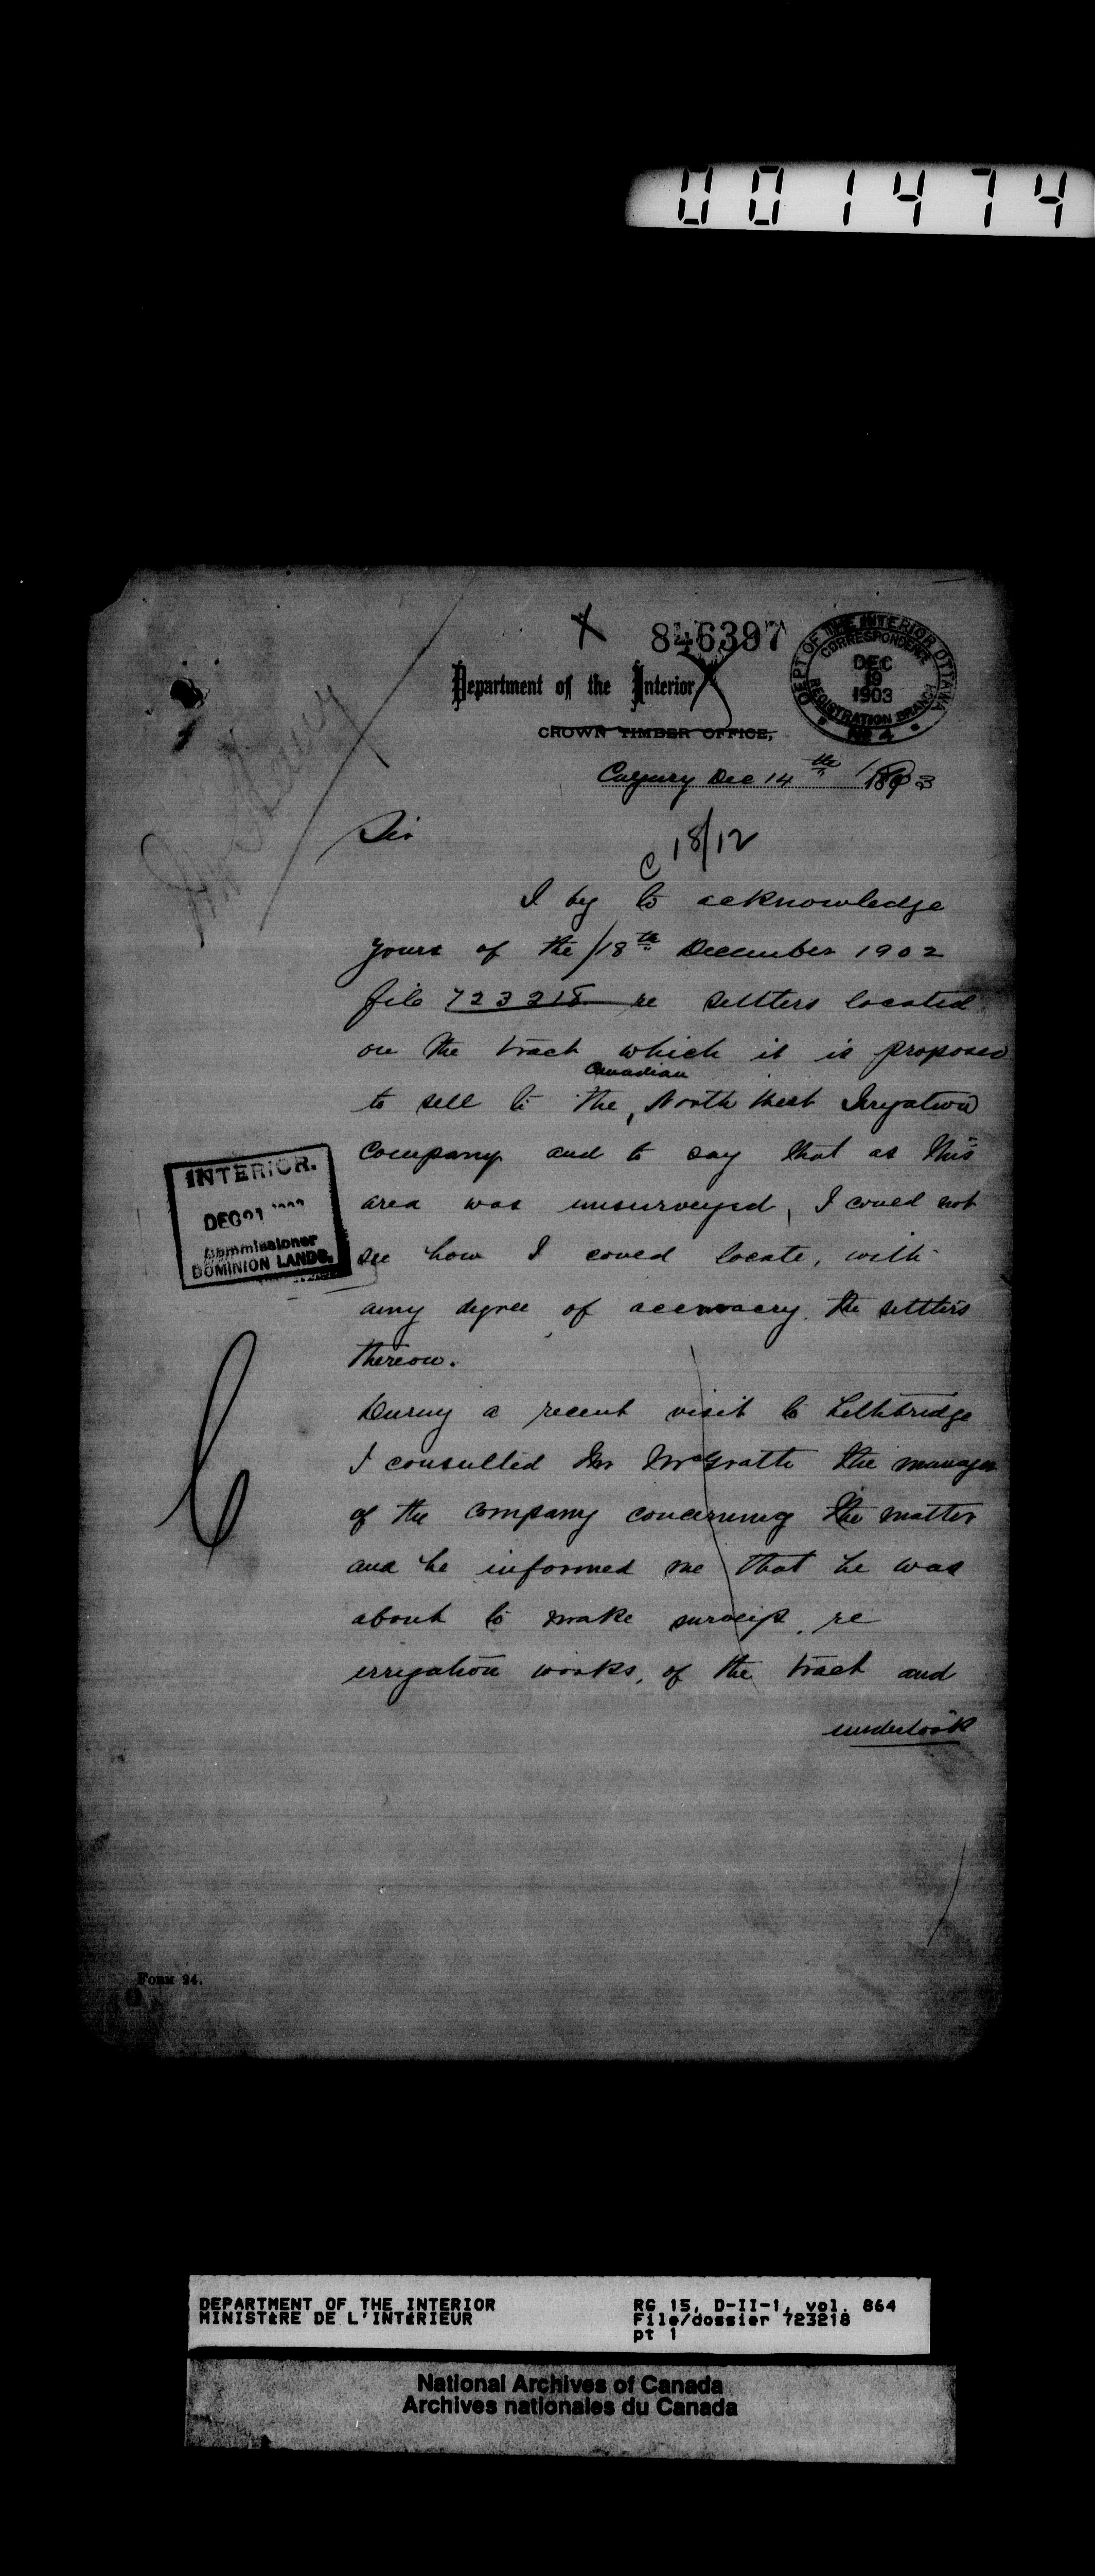 001474
846397
DEPT OF THE INTERIOR OTTAWA
CORRESPONDENCE
DEC
19
1903
REGISTRATION BRANCH
No 4
Department of the Interior
CROWN TIMBER OFFICE,
Calgary Dec 14th 1903
Sir
C 18/12
I beg to acknowledge
yours of the 18th December 1902
file 723218 re settlers located
on the tract which it is proposed
Canadian
to sell to the North West Irrigation
Company and to say that as this
area was unsurveyed, I could not
see how I could locate, with
any degree of accuracy the settlers
thereon.
During a recent visit to Lethbridge
I consulted Mr McGrath the manager
of the company concerning the matter
and he informed me that he was
about to make surveys, re
irrigation works, of the tract and
undertook
INTERIOR.
DEC 21
Commissioner
DOMINION LANDS.
FORM 94.
DEPARTMENT OF THE INTERIOR
MINISTÈRE DE L'INTÉRIEUR
RG 15, D-II-1, vol. 864
File/dossier 723218
pt 1
National Archives of Canada
Archives nationales du Canada